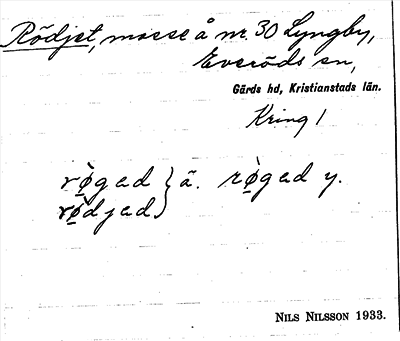 Rödjet, mosse å nr. 30 Lyngby,
Everöds sn,
Gärds hd, Kristianstads län.
Kring 1
rø̀gad } ä. rø̀gad y.
rø̀djad
NILS NILSSON 1933.